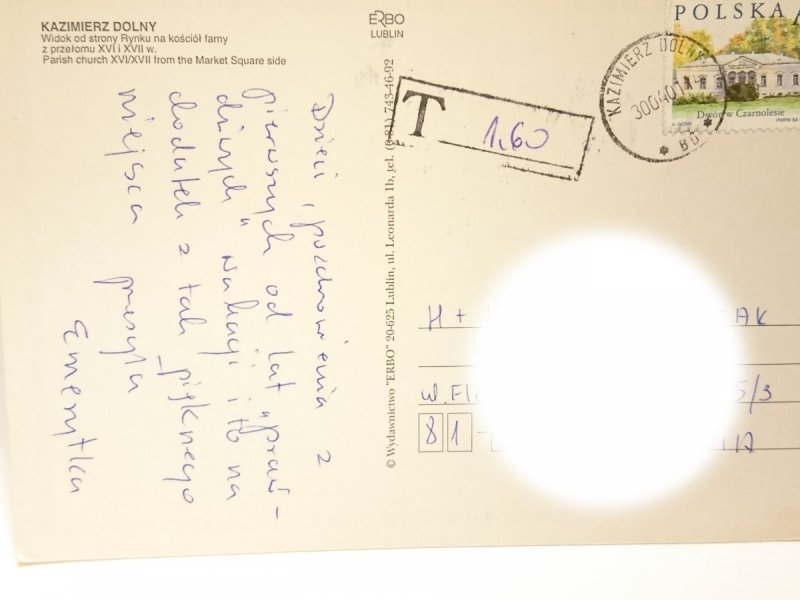 KAZIMIERZ DOLNY
Widok od strony Rynku na kościół farny
z przełomu XVI i XVII w.
Parish church XVI/XVII from the Market Square side
ERBO
LUBLIN
POLSKA A
Dwór w Czarnolesie
KAZIMIERZ DOLNY
T 1.60
© Wydawnictwo "ERBO" 20-625 Lublin, ul. Leonarda 1b, tel. (0-81) 743-46-92
Dzieci, pozdrowienia z
pierwszych od lat „praw-
dziwych" wakacji i to na
dodatek z tak pięknego
miejsca przesyła
Emerytka
H + AK
ul. Fl 5/3
81-